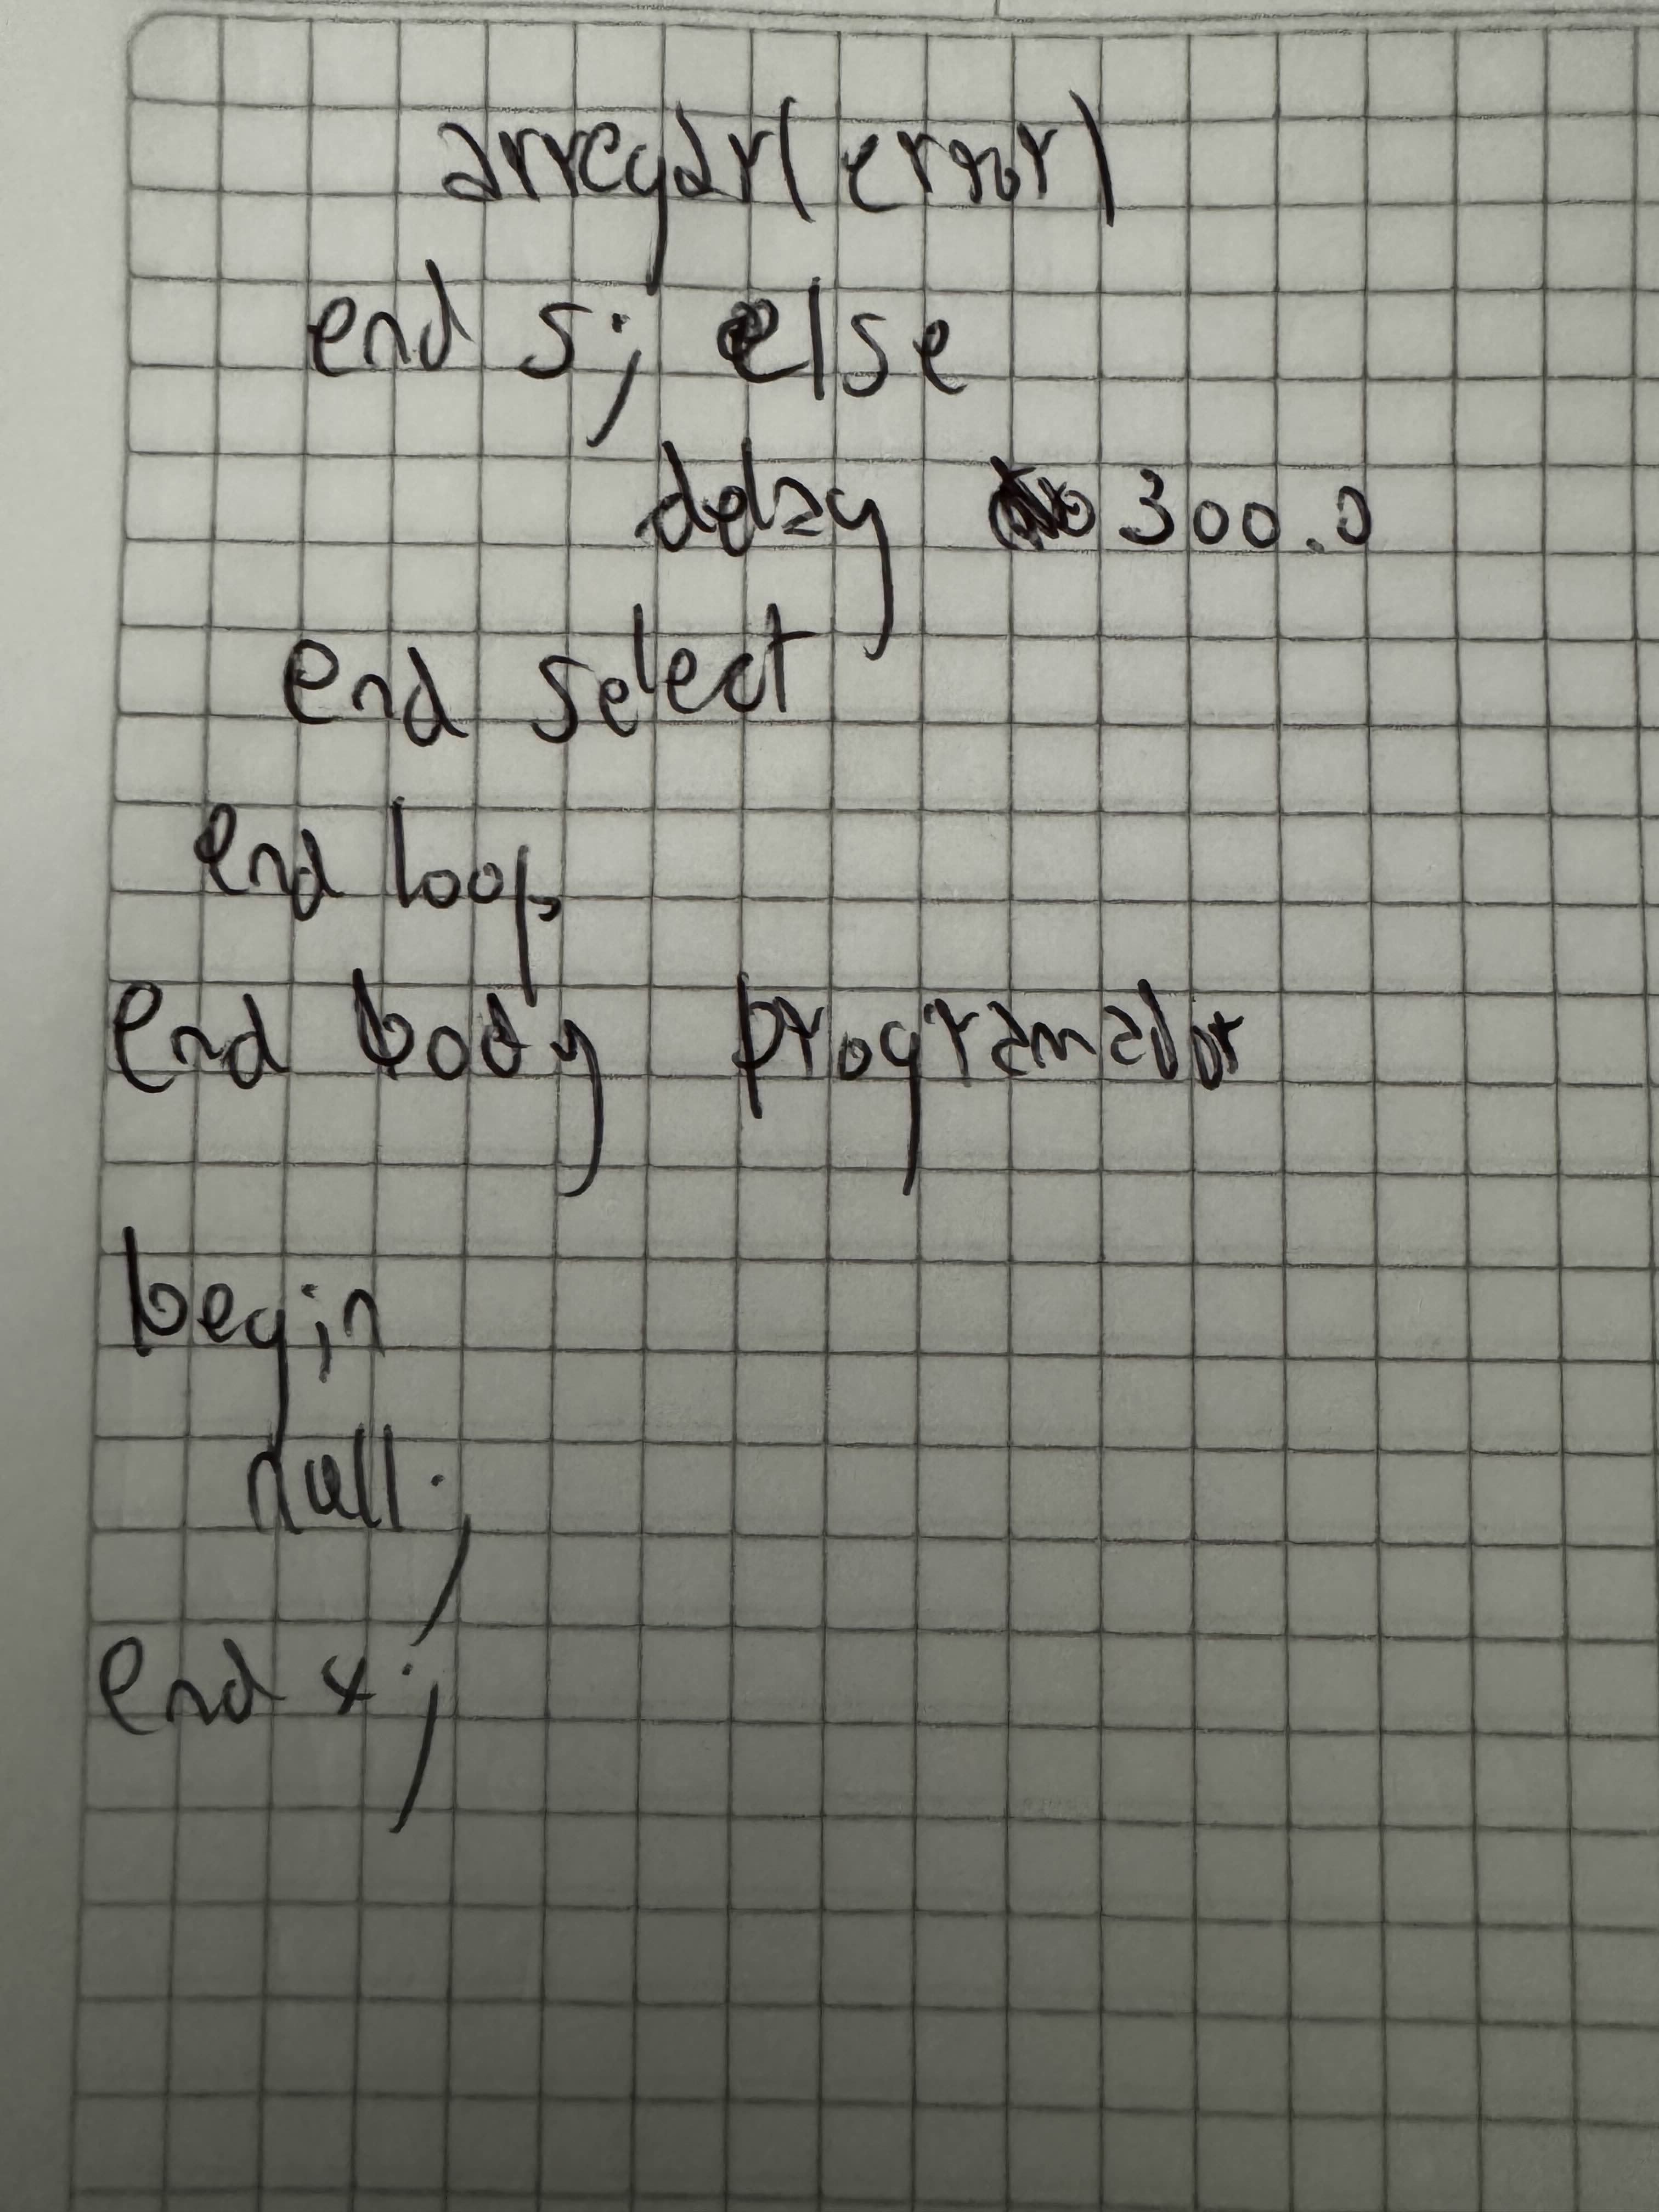 arregar(error)
end s; else
delay 300.0
end select
end loop
end body programador
begin
null;
end x;